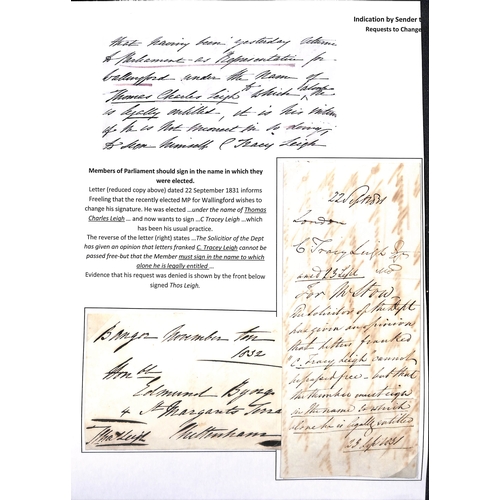 Indication by Sender t
Requests to Change
that having been yesterday
to Parliament as Representative for
Wallingford under the name of
Thomas Charles Leigh to which
is legally entitled, it is his
if he is not incorrect in so doing,
to sign himself C Tracy Leigh
Members of Parliament should sign in the name in which they
were elected.
Letter (reduced copy above) dated 22 September 1831 informs
Freeling that the recently elected MP for Wallingford wishes to
change his signature. He was elected ...under the name of Thomas
Charles Leigh ... and now wants to sign ...C Tracy Leigh ...which
has been his usual practice.
The reverse of the letter (right) states ...The Solicitor of the Dept
has given an opinion that letters franked C. Tracey Leigh cannot be
passed free-but that the Member must sign in the name to which
alone he is legally entitled ...
Evidence that his request was denied is shown by the front below
signed Thos Leigh.
22 Sept 1831
London
C Tracy Leigh
23 Sept
For Mr Stow
The Solicitor of the Dept
has given an opinion
that letters franked
C. Tracy Leigh cannot
be passed free - but that
the Member must sign
in the name to which
alone he is legally entitled
23 Sept 1831
Bangor November ten
1832
Honble
Edmund Byng
4 St Margarets Terra
Cheltenham
Thos Leigh